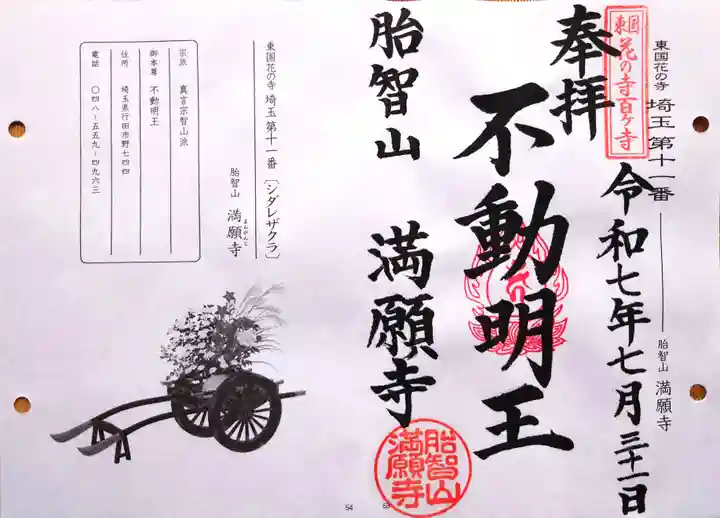 東国花の寺 埼玉第十一番
胎智山 満願寺
東国
花の寺百ヶ寺
奉拝
令和七年七月三十一日
不動明王
胎智山 満願寺
胎智山
満願寺
53
東国花の寺 埼玉第十一番 〔シダレザクラ〕
胎智山 満願寺
まんがんじ
宗派 真言宗智山派
御本尊 不動明王
住所 埼玉県行田市野七四四
電話 〇四八-五五九-四九六三
54